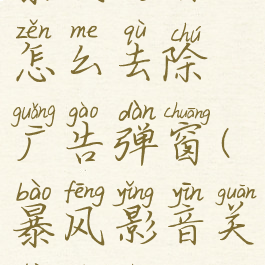 zěn me qù chú
怎么去除
guǎng gào dàn chuāng
广告弹窗(
bào fēng yǐng yīn guān
暴风影音关